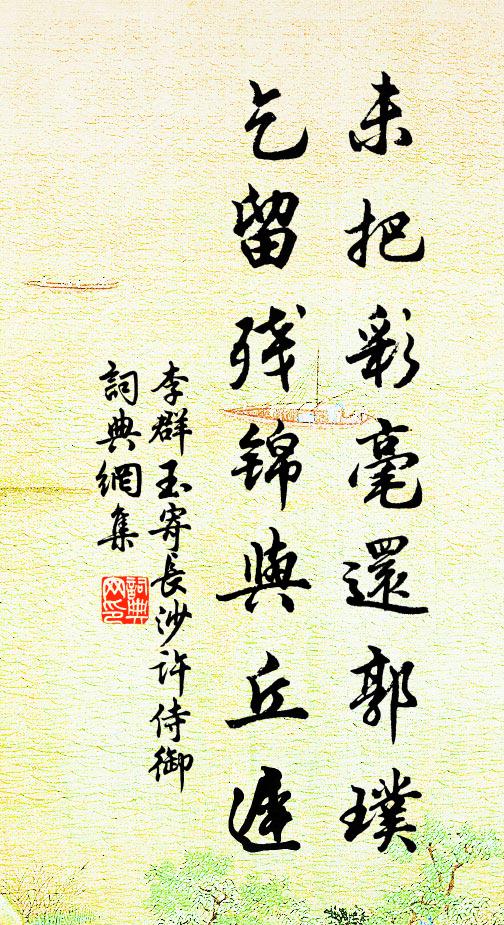 未把彩毫還郭璞
乞留残锦與丘遲
李群玉寄長沙許侍御
詞典網集
詞典
网印